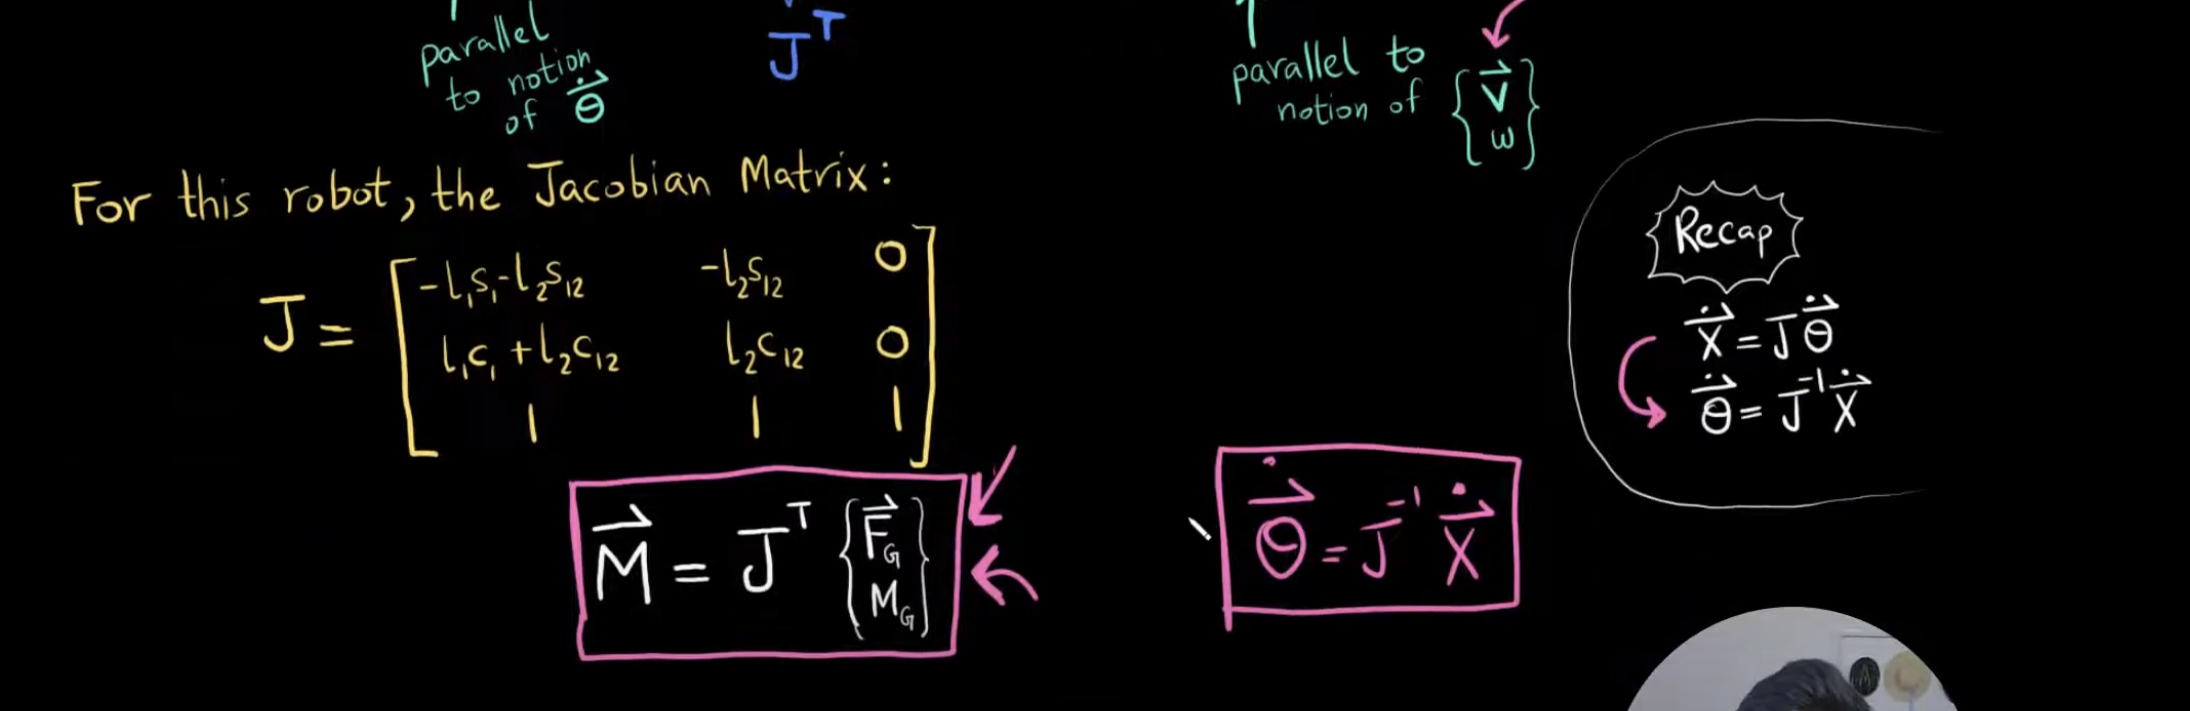 parallel
to notion
of θ̇⃗
J^T
parallel to
notion of { V⃗
ω }
For this robot, the Jacobian Matrix:
J = [ -l₁s₁-l₂s₁₂ -l₂s₁₂ 0
l₁c₁+l₂c₁₂ l₂c₁₂ 0
1 1 1 ]
M⃗ = J^T { F⃗_G
M_G }
θ̇⃗ = J⁻¹ Ẋ⃗
Recap
Ẋ⃗ = J θ̇⃗
θ̇⃗ = J⁻¹ Ẋ⃗